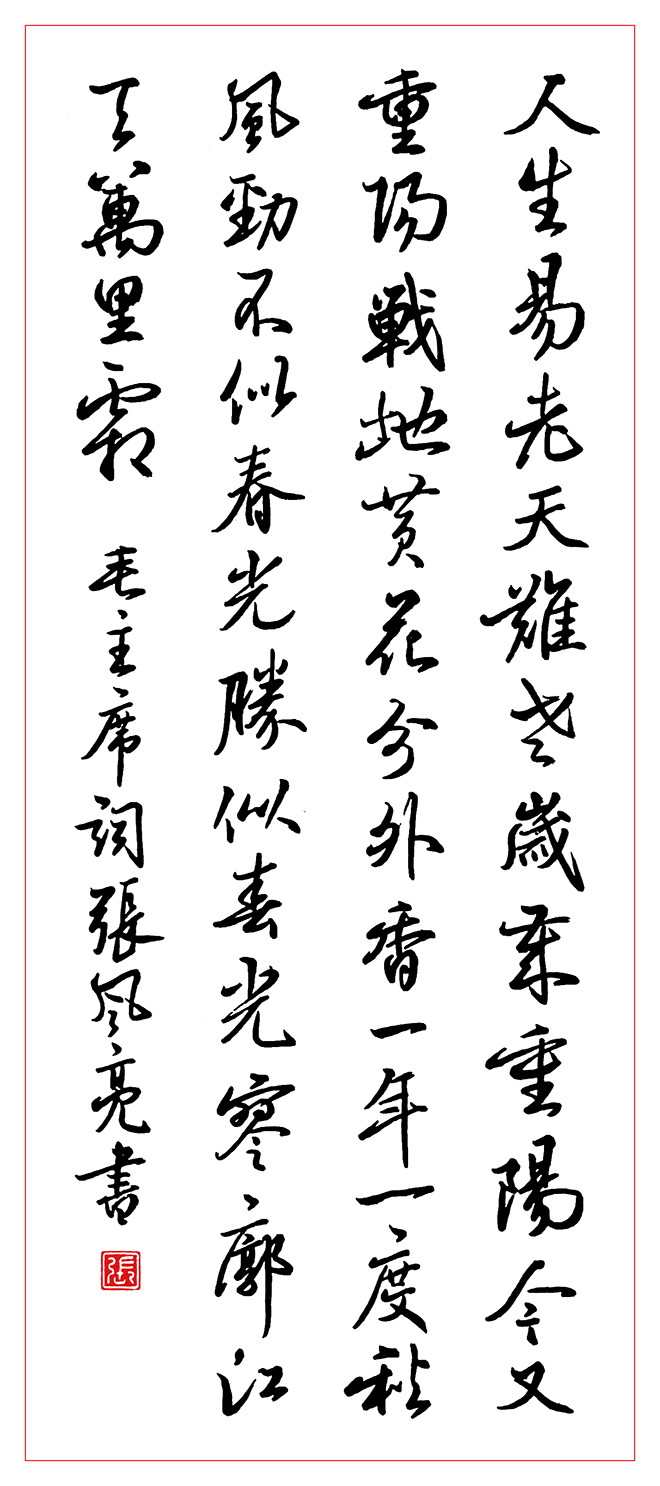 人生易老天難老歲歲重陽今又
重陽戰地黃花分外香一年一度秋
風勁不似春光勝似春光寥廓江
天萬里霜 毛主席詞張風亮書
張